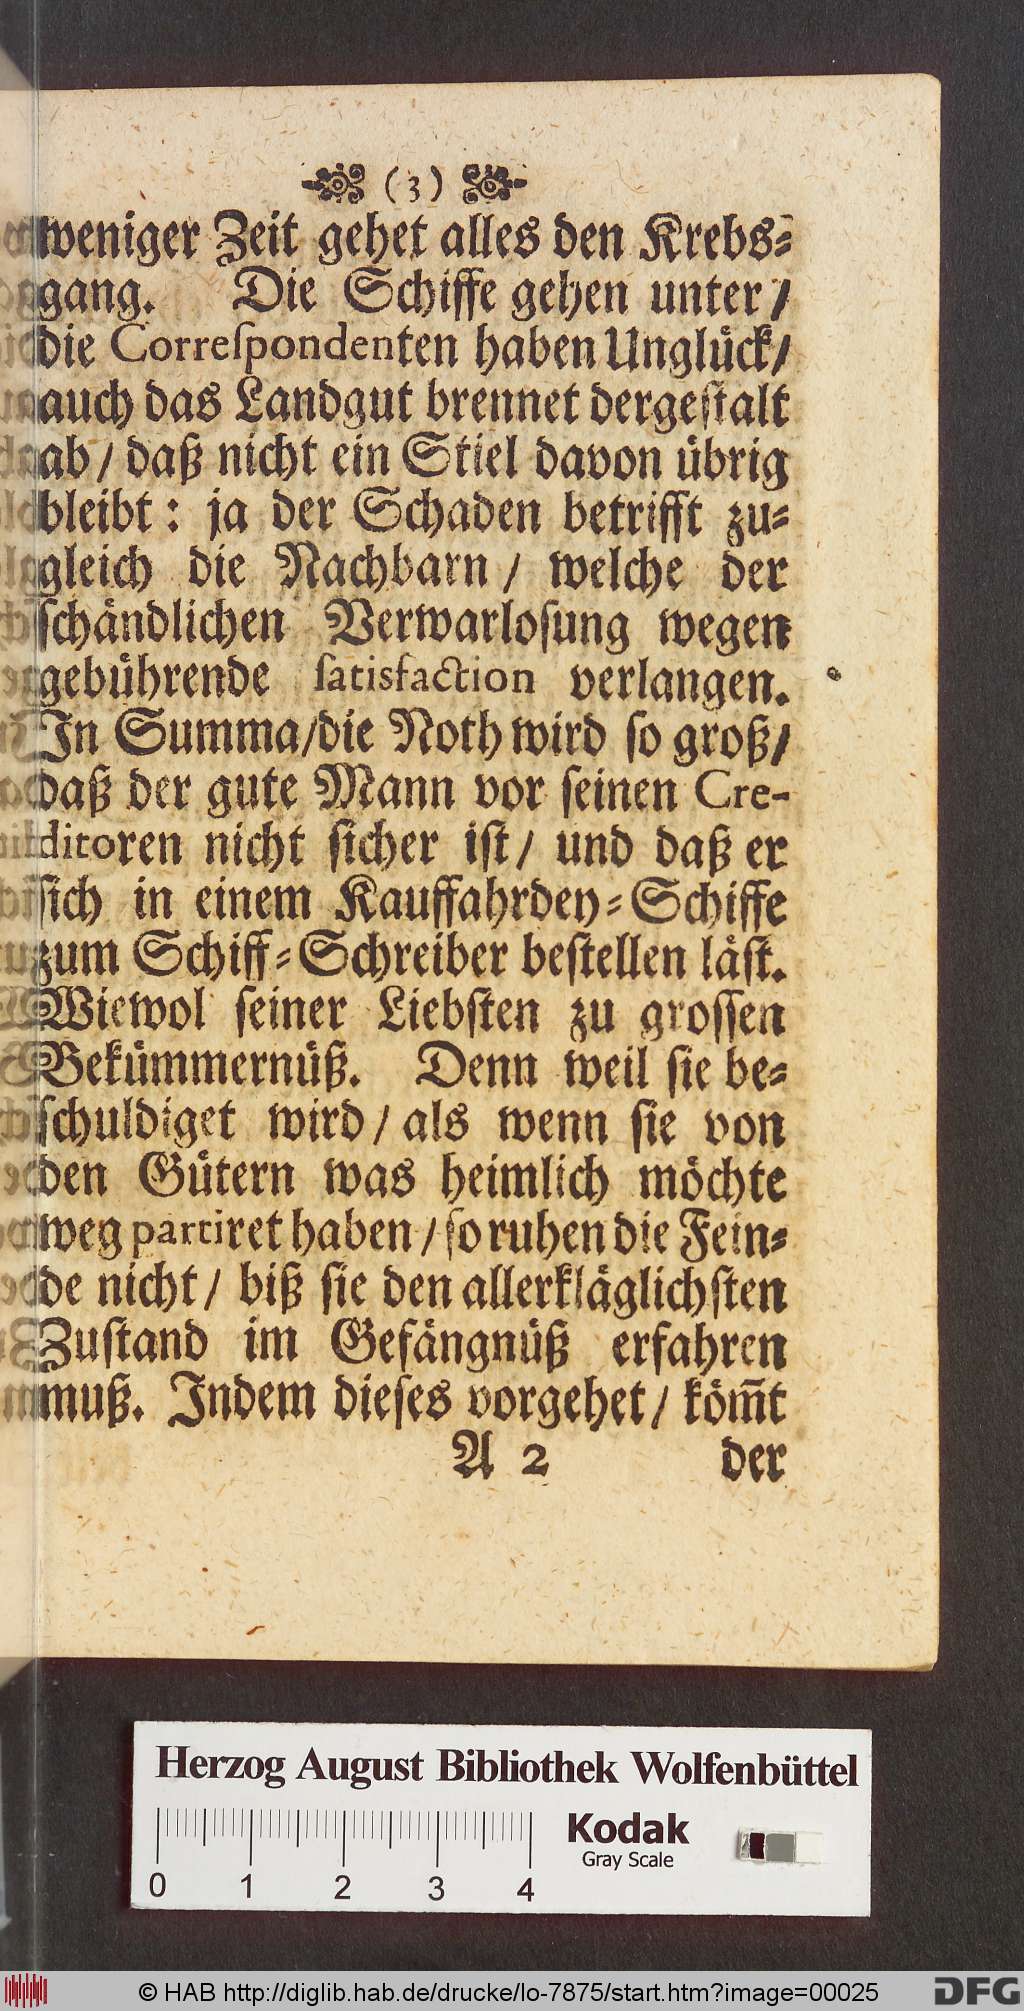 (3)
weniger Zeit gehet alles den Krebs-
gang. Die Schiffe gehen unter/
die Correſpondenten haben Unglück/
auch das Landgut brennet dergeſtalt
ab/ daß nicht ein Stiel davon übrig
bleibt: ja der Schaden betrifft zu-
gleich die Nachbarn/ welche der
ſchändlichen Verwarloſung wegen
gebührende ſatisfaction verlangen.
In Summa/die Noth wird ſo groß/
daß der gute Mann vor ſeinen Cre-
ditoren nicht ſicher iſt/ und daß er
ſich in einem Kauffahrdey-Schiffe
zum Schiff-Schreiber beſtellen läſt.
Wiewol ſeiner Liebſten zu groſſen
Bekümmernüß. Denn weil ſie be-
ſchuldiget wird/ als wenn ſie von
den Gütern was heimlich möchte
weg partiret haben/ ſo ruhen die Fein-
de nicht/ biß ſie den allerkläglichſten
Zuſtand im Gefängnüß erfahren
muß. Indem dieſes vorgehet/ köm̃t
A 2 der
Herzog August Bibliothek Wolfenbüttel
Kodak
Gray Scale
0 1 2 3 4
© HAB http://diglib.hab.de/drucke/lo-7875/start.htm?image=00025
DFG